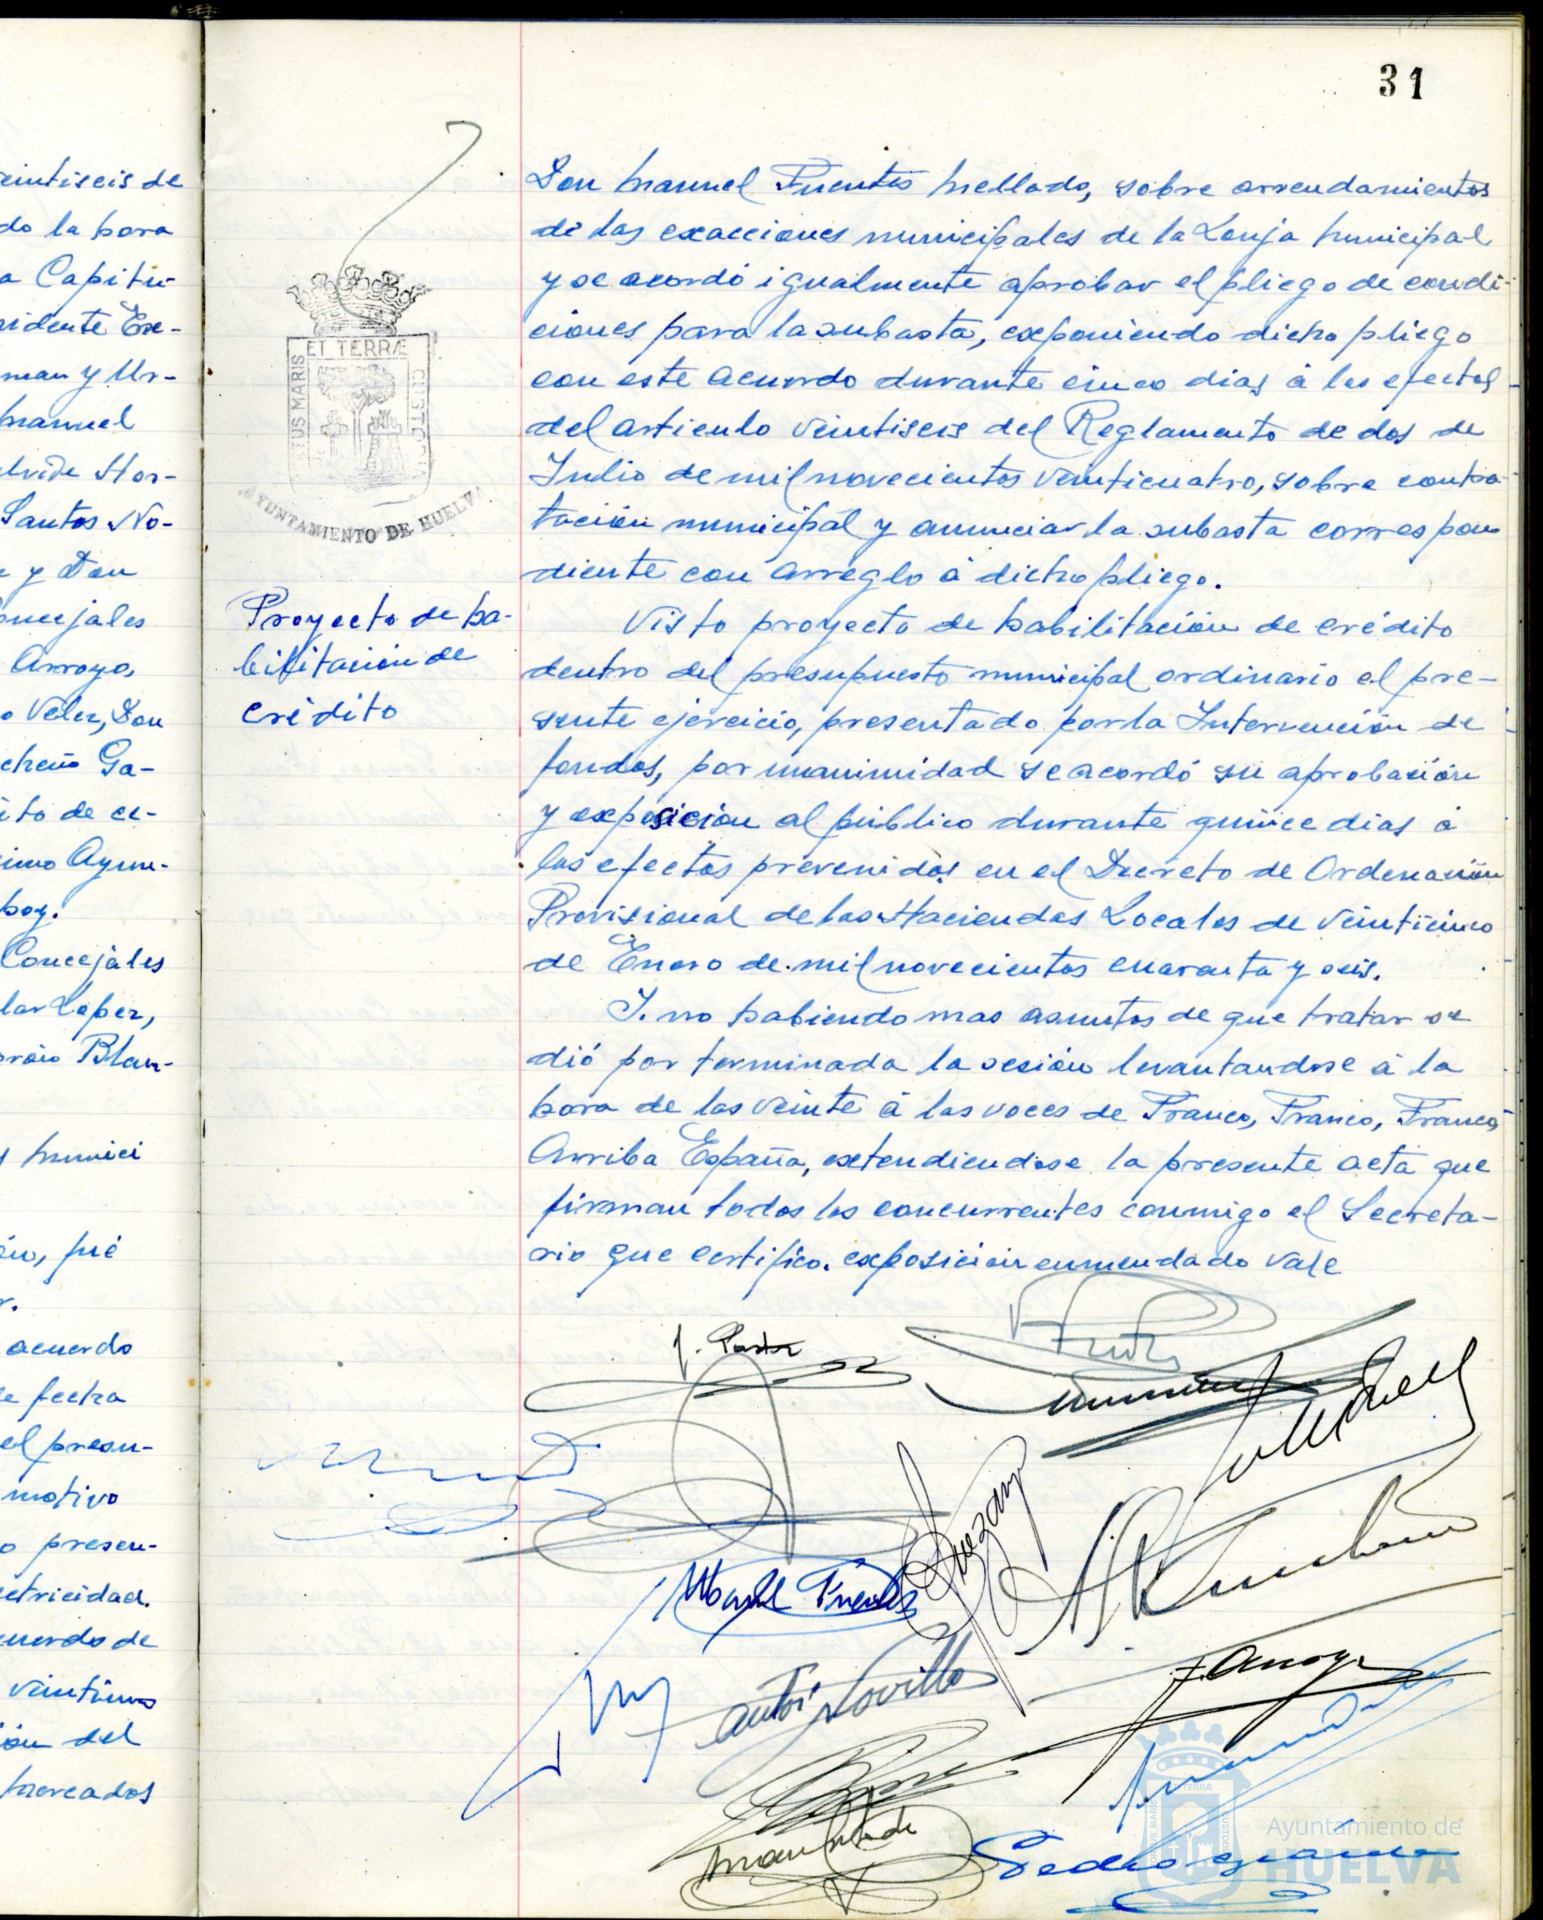 31
eintiseis de
do la hora
a Capitu-
sidente Exe-
man y Ur-
Manuel
lvide Hor-
Santos No-
n y Don
oncejales
Arroyo,
o Velez, Don
cheño Ga-
ito de ce-
imo Ayun-
hoy.
Concejales
lar Lopez,
Blan-
Munici
ón, fué
r.
acuerdo
e fecha
el presu-
motivo
o presen-
ectricidad.
cuerdo de
veintiuno
ión del
Mercados
ET TERRÆ
PORTUS MARIS
CUSTODIA
AYUNTAMIENTO DE HUELVA
Proyecto de ha-
bilitación de
crédito
Don Manuel Fuentes Mellado, sobre arrendamientos
de las exacciones municipales de la Lonja Municipal
y se acordó igualmente aprobar el pliego de condi-
ciones para la subasta, exponiendo dicho pliego
con este acuerdo durante cinco dias á los efectos
del articulo veintiseis del Reglamento de dos de
Julio de mil novecientos veinticuatro, sobre contra-
tación municipal y anunciar la subasta correspon
diente con arreglo á dicho pliego.
Visto proyecto de habilitación de crédito
dentro del presupuesto municipal ordinario el pre-
sente ejercicio, presentado por la Intervención de
fondos, por unanimidad se acordó su aprobación
y exposición al público durante quince dias á
los efectos prevenidos en el Decreto de Ordenación
Provisional de las Haciendas Locales de veinticinco
de Enero de mil novecientos cuarenta y seis.
Y no habiendo mas asuntos de que tratar se
dió por terminada la sesión levantandose á la
hora de las veinte á las voces de Franco, Franco, Franco,
Arriba España, extendiendose la presente acta que
firman todos los concurrentes conmigo el Secreta-
rio que certifico. exposición enmendado vale
Manuel Fuentes
Suezary
J. Arroyo
Ayuntamiento de
HUELVA